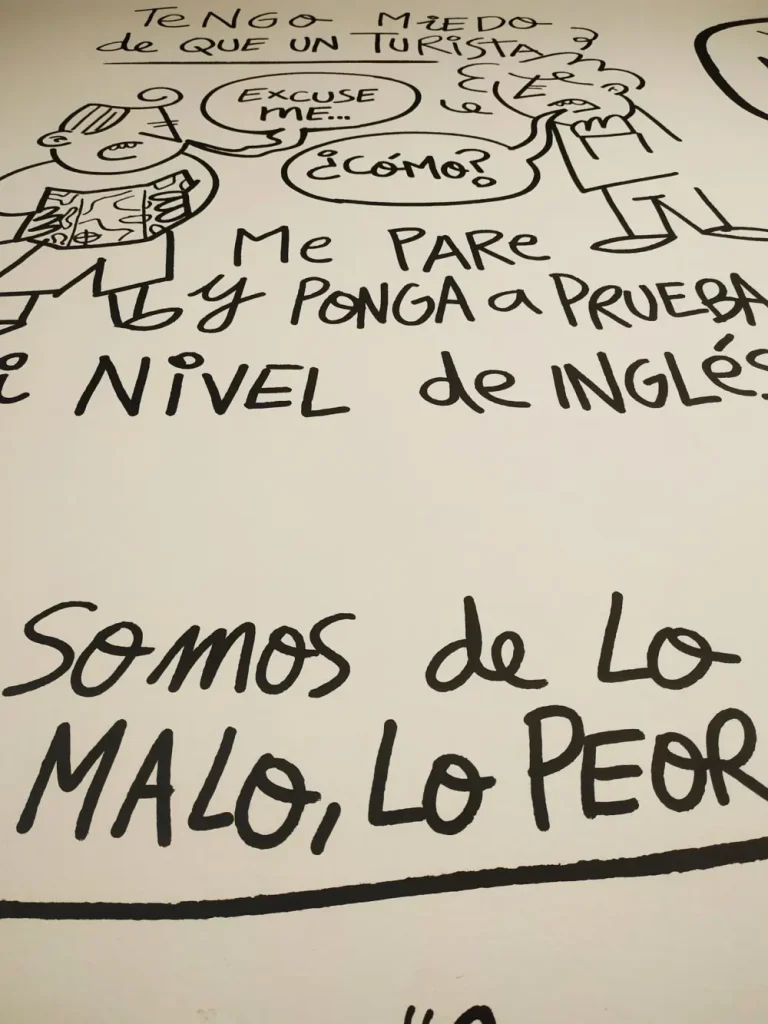 TENGO MIEDO
de QUE UN TURISTA
EXCUSE
ME...
¿CÓMO?
Me PARe
y PONGA a PRUEBA
i NiVEL de INGLÉS
Somos de Lo
MALO, Lo PEOR